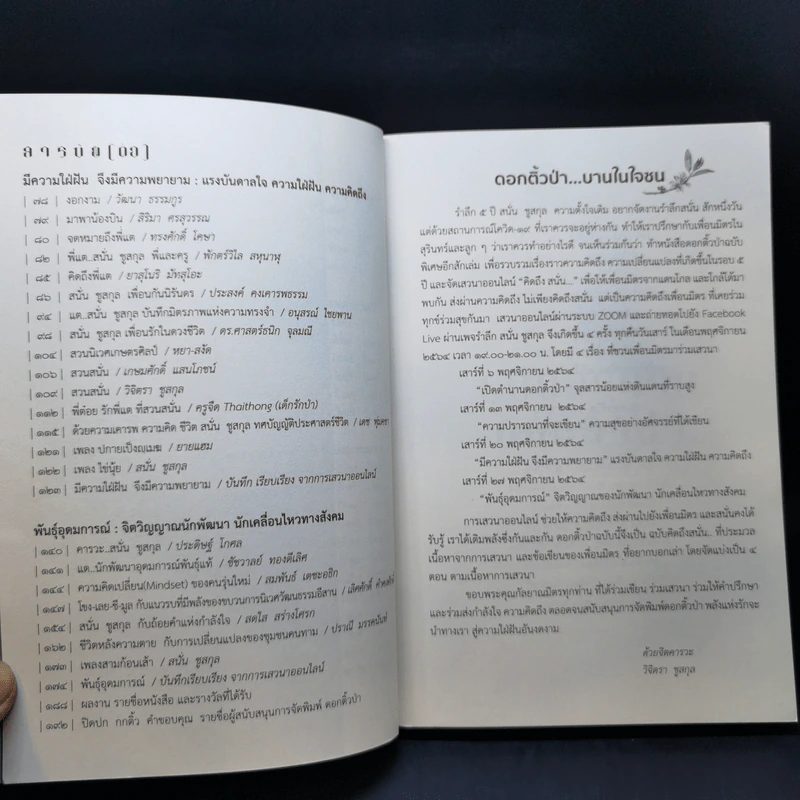 สารบัญ(ต่อ)
มีความใฝ่ฝัน จึงมีความพยายาม : แรงบันดาลใจ ความใฝ่ฝัน ความคิดถึง
| ๗๘ | งอกงาม / วัฒนา ธรรมกูร
| ๗๙ | มาพาน้องบิน / สิริมา ศรสุวรรณ
| ๘๐ | จดหมายถึงพี่แต / ทรงศักดิ์ โคษา
| ๘๒ | พี่แต...สนั่น ชูสกุล พี่และครู / พักตร์วิไล สหุนาฬุ
| ๘๕ | คิดถึงพี่แต / ยาสุโนริ มัทสุโอะ
| ๘๖ | สนั่น ชูสกุล เพื่อนกันนิรันดร / ประสงค์ คงเคารพธรรม
| ๙๔ | แต...สนั่น ชูสกุล บันทึกมิตรภาพแห่งความทรงจำ / อนุสรณ์ ไชยพาน
| ๙๘ | สนั่น ชูสกุล เพื่อนรักในดวงชีวิต / ดร.ศาสตร์ธนิก จุลมณี
| ๑๐๔ | สวนนิเวศเกษตรศิลป์ / หยา-สงัด
| ๑๐๖ | สวนสนั่น / เกษมศักดิ์ แสนโภชน์
| ๑๐๙ | สวนสนั่น / วิจิตรา ชูสกุล
| ๑๑๒ | พี่ต้อย รักพี่แต ที่สวนสนั่น / ครูจืด Thaithong (เด็กรักป่า)
| ๑๑๕ | ด้วยความเคารพ ความคิด ชีวิต สนั่น ชูสกุล ทศบัญญัติประศาสตร์ชีวิต / เดช พุ่มคชา
| ๑๒๑ | เพลง ปกายเปิ็งญเมฆ / ยายแฮม
| ๑๒๒ | เพลง ไข่นุ้ย / สนั่น ชูสกุล
| ๑๒๓ | มีความใฝ่ฝัน จึงมีความพยายาม / บันทึก เรียบเรียง จากการเสวนาออนไลน์
พันธุ์อุดมการณ์ : จิตวิญญาณนักพัฒนา นักเคลื่อนไหวทางสังคม
| ๑๔๐ | คารวะ...สนั่น ชูสกุล / ประดิษฐ์ โกศล
| ๑๔๑ | แต...นักพัฒนาอุดมการณ์พันธุ์แท้ / ชัชวาลย์ ทองดีเลิศ
| ๑๔๔ | ความคิดเปลี่ยน(Mindset) ของคนรุ่นใหม่ / สมพันธ์ เตชะอธิก
| ๑๔๗ | โขง-เลย-ชี-มูล กับแนวรบที่มีพลังของขบวนการนิเวศวัฒนธรรมอีสาน / เลิศศักดิ์
| ๑๕๔ | สนั่น ชูสกุล กับถ้อยคำแห่งกำลังใจ / สดใส สร่างโศรก
| ๑๖๒ | ชีวิตหลังความตาย กับการเปลี่ยนแปลงของชุมชนคนทาม / ปราณี มรรคนันท์
| ๑๗๓ | เพลงสามก้อนเส้า / สนั่น ชูสกุล
| ๑๗๔ | พันธุ์อุดมการณ์ / บันทึกเรียบเรียง จากการเสวนาออนไลน์
| ๑๘๘ | ผลงาน รายชื่อหนังสือ และรางวัลที่ได้รับ
| ๑๙๒ | ปิดปก กกติ้ว คำขอบคุณ รายชื่อผู้สนับสนุนการจัดพิมพ์ ดอกติ้วป่า
ดอกติ้วป่า...บานในใจชน
รำลึก ๕ ปี สนั่น ชูสกุล ความตั้งใจเดิม อยากจัดงานรำลึกสนั่น สักหนึ่งวัน
แต่ด้วยสถานการณ์โควิด-๑๙ ที่เราควรจะอยู่ห่างกัน ทำให้เราปรึกษากับเพื่อนมิตรใน
สุรินทร์และลูก ๆ ว่าเราควรทำอย่างไรดี จนเห็นร่วมกันว่า ทำหนังสือดอกติ้วป่าฉบับ
พิเศษอีกสักเล่ม เพื่อรวบรวมเรื่องราวความคิดถึง ความเปลี่ยนแปลงที่เกิดขึ้นในรอบ ๕
ปี และจัดเสวนาออนไลน์ “คิดถึง สนั่น...” เพื่อให้เพื่อนมิตรจากแดนไกล และใกล้ได้มา
พบกัน ส่งผ่านความคิดถึง ไม่เพียงคิดถึงสนั่น แต่เป็นความคิดถึงเพื่อนมิตร ที่เคยร่วม
ทุกข์ร่วมสุขกันมา เสวนาออนไลน์ผ่านระบบ ZOOM และถ่ายทอดไปยัง Facebook
Live ผ่านเพจรำลึก สนั่น ชูสกุล จึงเกิดขึ้น ๔ ครั้ง ทุกคืนวันเสาร์ ในเดือนพฤศจิกายน
๒๕๖๔ เวลา ๑๙.๐๐-๒๑.๐๐ น. โดยมี ๔ เรื่อง ที่ชวนเพื่อนมิตรมาร่วมเสวนา
เสาร์ที่ ๖ พฤศจิกายน ๒๕๖๔
“เปิดตำนานดอกติ้วป่า” จุลสารน้อยแห่งดินแดนที่ราบสูง
เสาร์ที่ ๑๓ พฤศจิกายน ๒๕๖๔
“ความปรารถนาที่จะเขียน” ความสุขอย่างอัศจรรย์ที่ได้เขียน
เสาร์ที่ ๒๐ พฤศจิกายน ๒๕๖๔
“มีความใฝ่ฝัน จึงมีความพยายาม” แรงบันดาลใจ ความใฝ่ฝัน ความคิดถึง
เสาร์ที่ ๒๗ พฤศจิกายน ๒๕๖๔
“พันธุ์อุดมการณ์” จิตวิญญาณของนักพัฒนา นักเคลื่อนไหวทางสังคม
การเสวนาออนไลน์ ช่วยให้ความคิดถึง ส่งผ่านไปยังเพื่อนมิตร และสนั่นคงได้
รับรู้ เราได้เติมพลังซึ่งกันและกัน ดอกติ้วป่าฉบับนี้จึงเป็น ฉบับคิดถึงสนั่น.. ที่ประมวล
เนื้อหาจากการเสวนา และข้อเขียนของเพื่อนมิตร ที่อยากบอกเล่า โดยจัดแบ่งเป็น ๔
ตอน ตามเนื้อหาการเสวนา
ขอบพระคุณกัลยาณมิตรทุกท่าน ที่ได้ร่วมเขียน ร่วมเสวนา ร่วมให้คำปรึกษา
และร่วมส่งกำลังใจ ความคิดถึง ตลอดจนสนับสนุนการจัดพิมพ์ดอกติ้วป่า พลังแห่งรักจะ
นำทางเรา สู่ความใฝ่ฝันอันงดงาม
ด้วยจิตคารวะ
วิจิตรา ชูสกุล